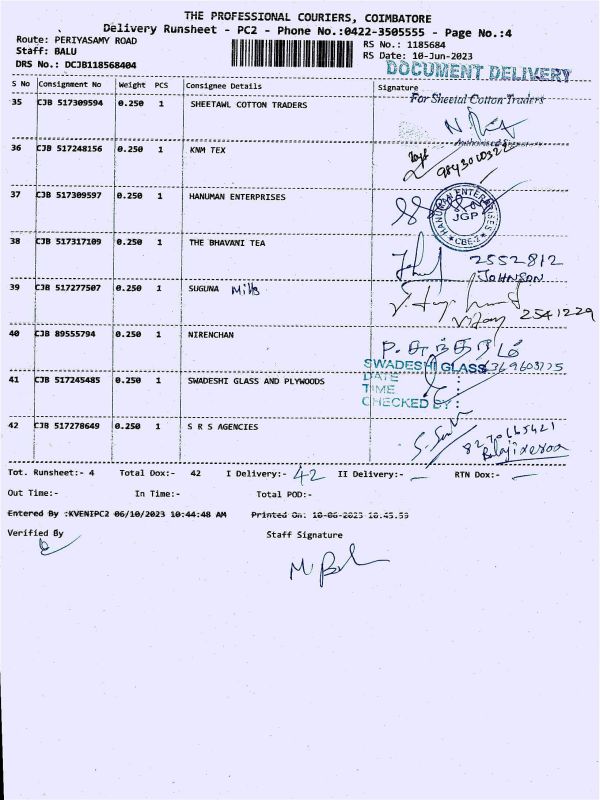 THE PROFESSIONAL COURIERS, COIMBATORE
Delivery Runsheet - PC2 - Phone No.:0422-3505555 - Page No.:4
Route: PERIYASAMY ROAD
RS No.: 1185684
Staff: BALU
RS Date: 10-Jun-2023
DRS No.: DCJB118568404
DOCUMENT DELIVERY
S No Consignment No Weight PCS Consignee Details Signature
35 CJB 517309594 0.250 1 SHEETAWL COTTON TRADERS
For Sheetal Cotton Traders
36 CJB 517248156 0.250 1 KNM TEX
37 CJB 517309597 0.250 1 HANUMAN ENTERPRISES
HANUMAN ENTERPRISES JGP CBE-2
38 CJB 517317109 0.250 1 THE BHAVANI TEA
2552812
JOHNSON
39 CJB 517277507 0.250 1 SUGUNA Mills
Vijay 2541229
40 CJB 89555794 0.250 1 NIRENCHAN
SWADESHI GLASS
41 CJB 517245485 0.250 1 SWADESHI GLASS AND PLYWOODS
DATE :
TIME :
CHECKED BY :
42 CJB 517278649 0.250 1 S R S AGENCIES
Tot. Runsheet:- 4 Total Dox:- 42 I Delivery:- 42 II Delivery:- - RTN Dox:- -
Out Time:- In Time:- Total POD:-
Entered By :KVENIPC2 06/10/2023 10:44:48 AM Printed On: 10-06-2023 10.45.59
Verified By Staff Signature